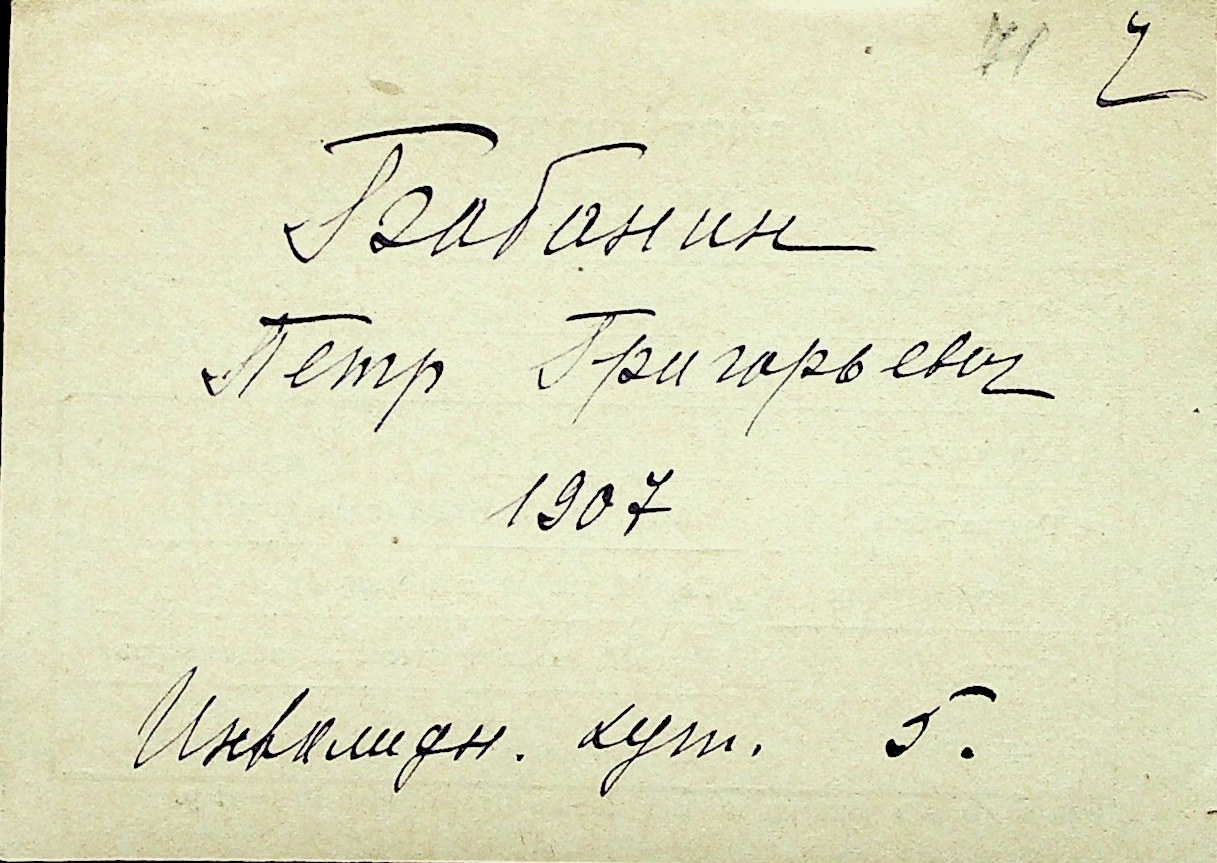 Бабанин
Петр Григорьевич
1907
Инвалидн. хут. 5.